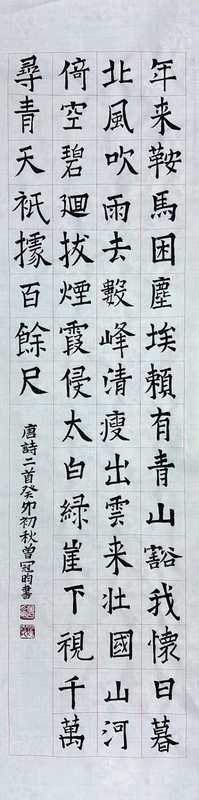 年来鞍馬困塵埃賴有青山豁我懷日暮
北風吹雨去數峰清瘦出雲来壯國山河
倚空碧迴拔煙霞侵太白綠崖下視千萬
尋青天衹據百餘尺
唐詩二首癸卯初秋曾冠昀書